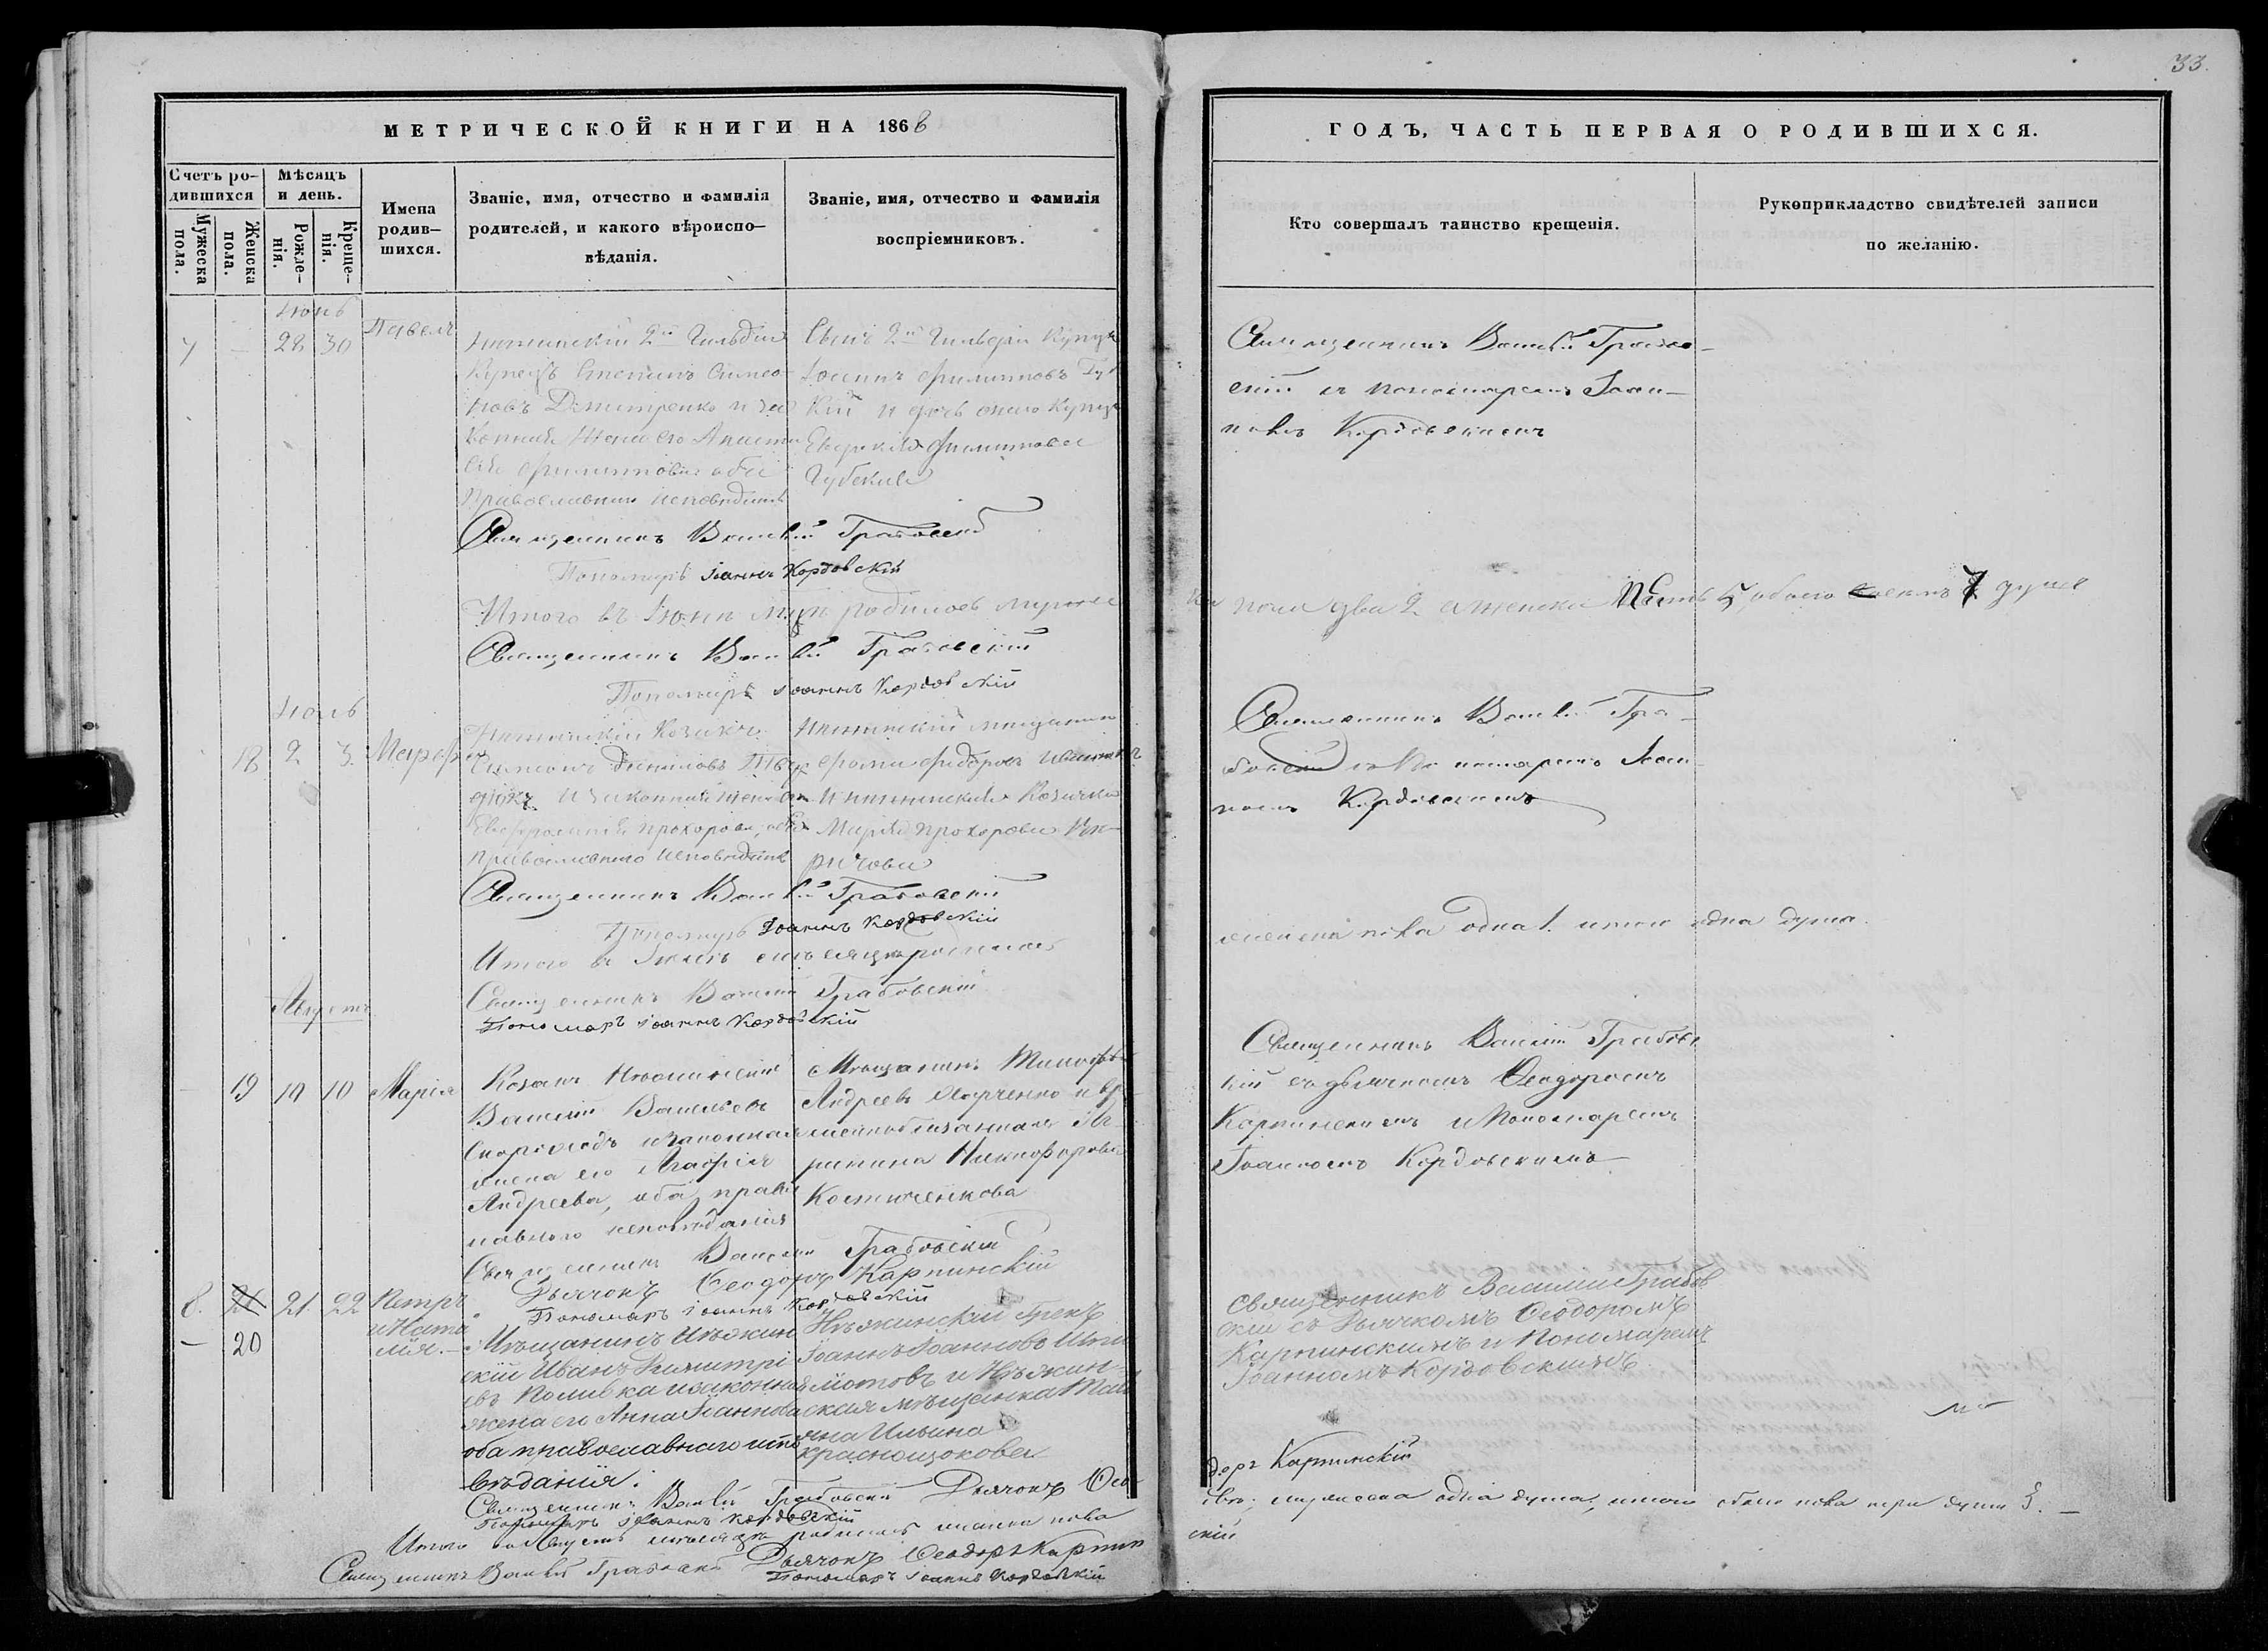 33.
МЕТРИЧЕСКОЙ КНИГИ НА 1868
ГОДЪ, ЧАСТЬ ПЕРВАЯ О РОДИВШИХСЯ.
Счетъ ро-
дившихся
Мужеска пола.
Женска пола.
Мѣсяцъ
и день.
Рожде-
нія.
Креще-
нія.
Имена
родив-
шихся.
Званіе, имя, отчество и фамилія
родителей, и какого вѣроиспо-
вѣданія.
Званіе, имя, отчество и фамилія
воспріемниковъ.
Кто совершалъ таинство крещенія.
Рукоприкладство свидѣтелей записи
по желанію.
Іюнь
7 — 28 30 Павелъ
Нѣжинскій 2й Гильдіи
Купецъ Степанъ Симео-
новъ Дмитренко и за-
конная жена его Анаста
сія Филиппова оба
Православнаго исповѣданія
Сынъ 2й Гильдіи Купца
Іоаннъ Филипповъ Губ
кій и дочь онаго Купца
Филиппова
Губскаго
Священникъ Василій Грабов-
скій съ пономаремъ Іоан-
номъ Кордовскимъ
Священникъ Василій Грабовскій
Пономарь Іоаннъ Кордовскій
Итого въ Іюнѣ родилось мужес
ка пола два 2 а женска пять 5, обоего 7 душъ
Священникъ Василій Грабовскій
Пономарь Іоаннъ Кордовскій
Іюль
18 2 3 Марфа
Нѣжинскій Козакъ
Симеонъ Даниловъ
и законная жена его
Прохорова, оба
православнаго исповѣданія
Нѣжинскій мѣщанинъ
Федоровъ
и Нѣжинская Козачка
Марія Прохорова
Священникъ Василій Гра-
бовскій съ пономаремъ Іоан-
номъ Кордовскимъ
Священникъ Василій Грабовскій
Пономарь Іоаннъ Кордовскій
Итого въ Іюлѣ мѣсяцѣ родилось
женска пола одна 1. итого одна душа.
Священникъ Василій Грабовскій
Пономарь Іоаннъ Кордовскій
Августъ
— 19 10 10 Марія
Козакъ Нѣжинскій
Василій Васильевъ
Скороходъ и законная
жена его Агафія
Андреева, оба право
славнаго исповѣданія
Мѣщанинъ Тимофѣй
Андреевъ Харченко и
рипина Никифорова
Костюченкова
Священникъ Василій Грабовс
кій съ дьячкомъ Ѳеодоромъ
Карпинскимъ и Пономаремъ
Іоанномъ Кордовскимъ
Священникъ Василій Грабовскій
Дьячокъ Ѳеодоръ Карпинскій
Пономарь Іоаннъ Кордовскій
8. 21 21 22 Петръ
и Ната
лія.
— 20
Мѣщанинъ Нѣжин
скій Иванъ Димитрі
евъ Поливка и законная
жена его Анна Іоаннова
оба православнаго испо
вѣданія.
Нѣжинскій Грекъ
Іоаннъ Іоанновъ
и Нѣжин-
ская мѣщанка Тать
яна Ильина
Краснощокова
Священникъ Василій Грабов
скій съ Дьячкомъ Ѳеодоромъ
Карпинскимъ и Пономаремъ
Іоанномъ Кордовскимъ.
Священникъ Василій Грабовскій Дьячокъ Ѳео
доръ Карпинскій
Пономарь Іоаннъ Кордовскій
Итого въ Августѣ мѣсяцѣ родилось женска пола
двѣ; мужеска одна душа; итого обоего пола три души 3. —
Священникъ Василій Грабовскій Дьячокъ Ѳеодоръ Карпин
скій
Пономарь Іоаннъ Кордовскій